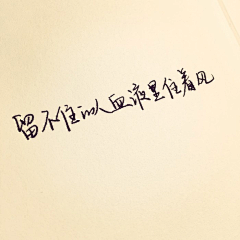 留不住的人血液里住着风